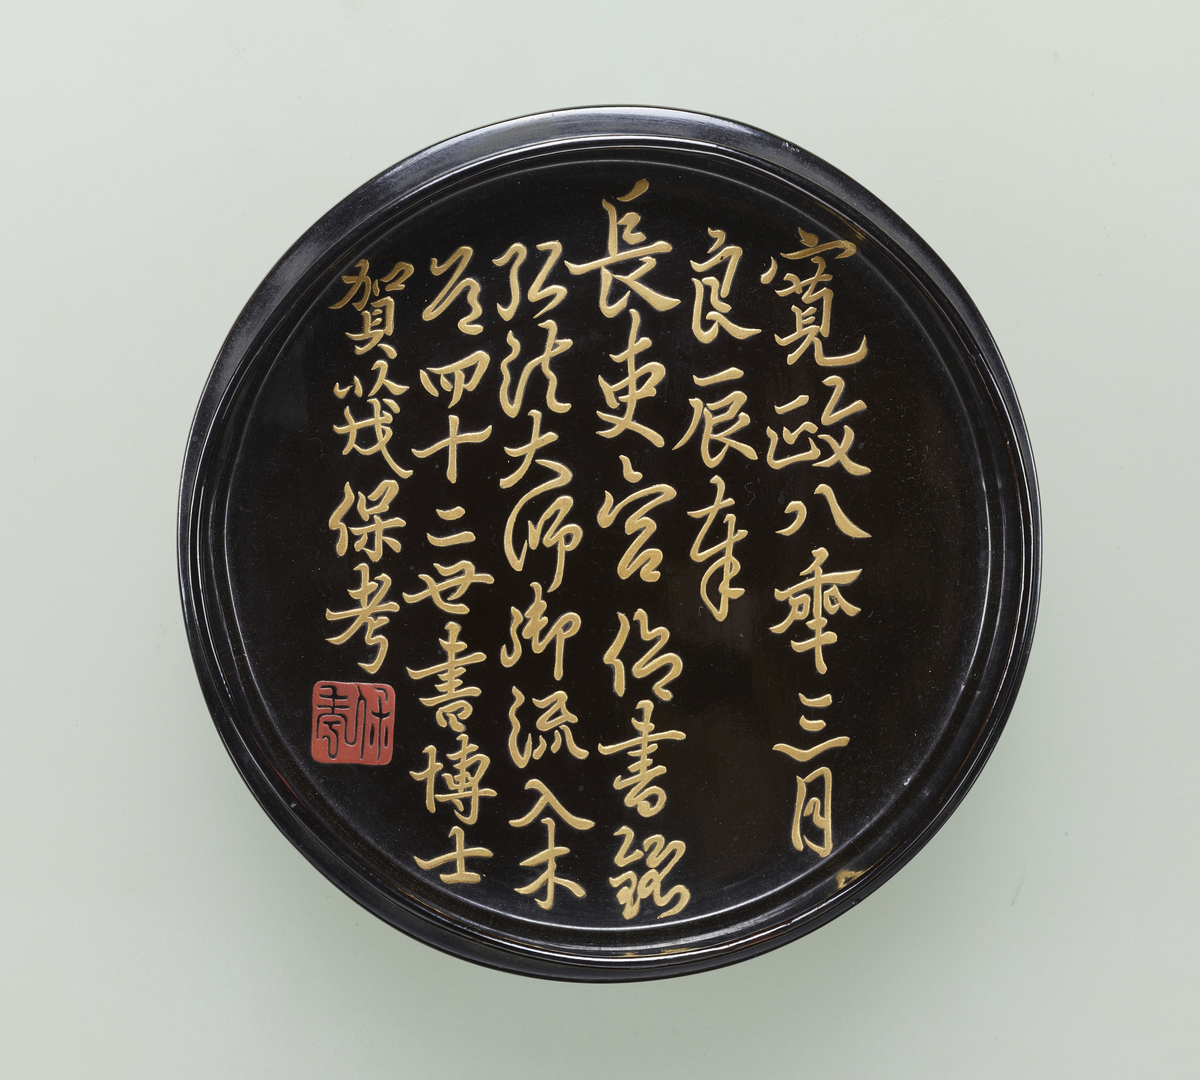 寛政八年三月
良辰奉
長吏宮仰書銘
弘法大師御流入木
道四十二世書博士
賀茂保考
保考